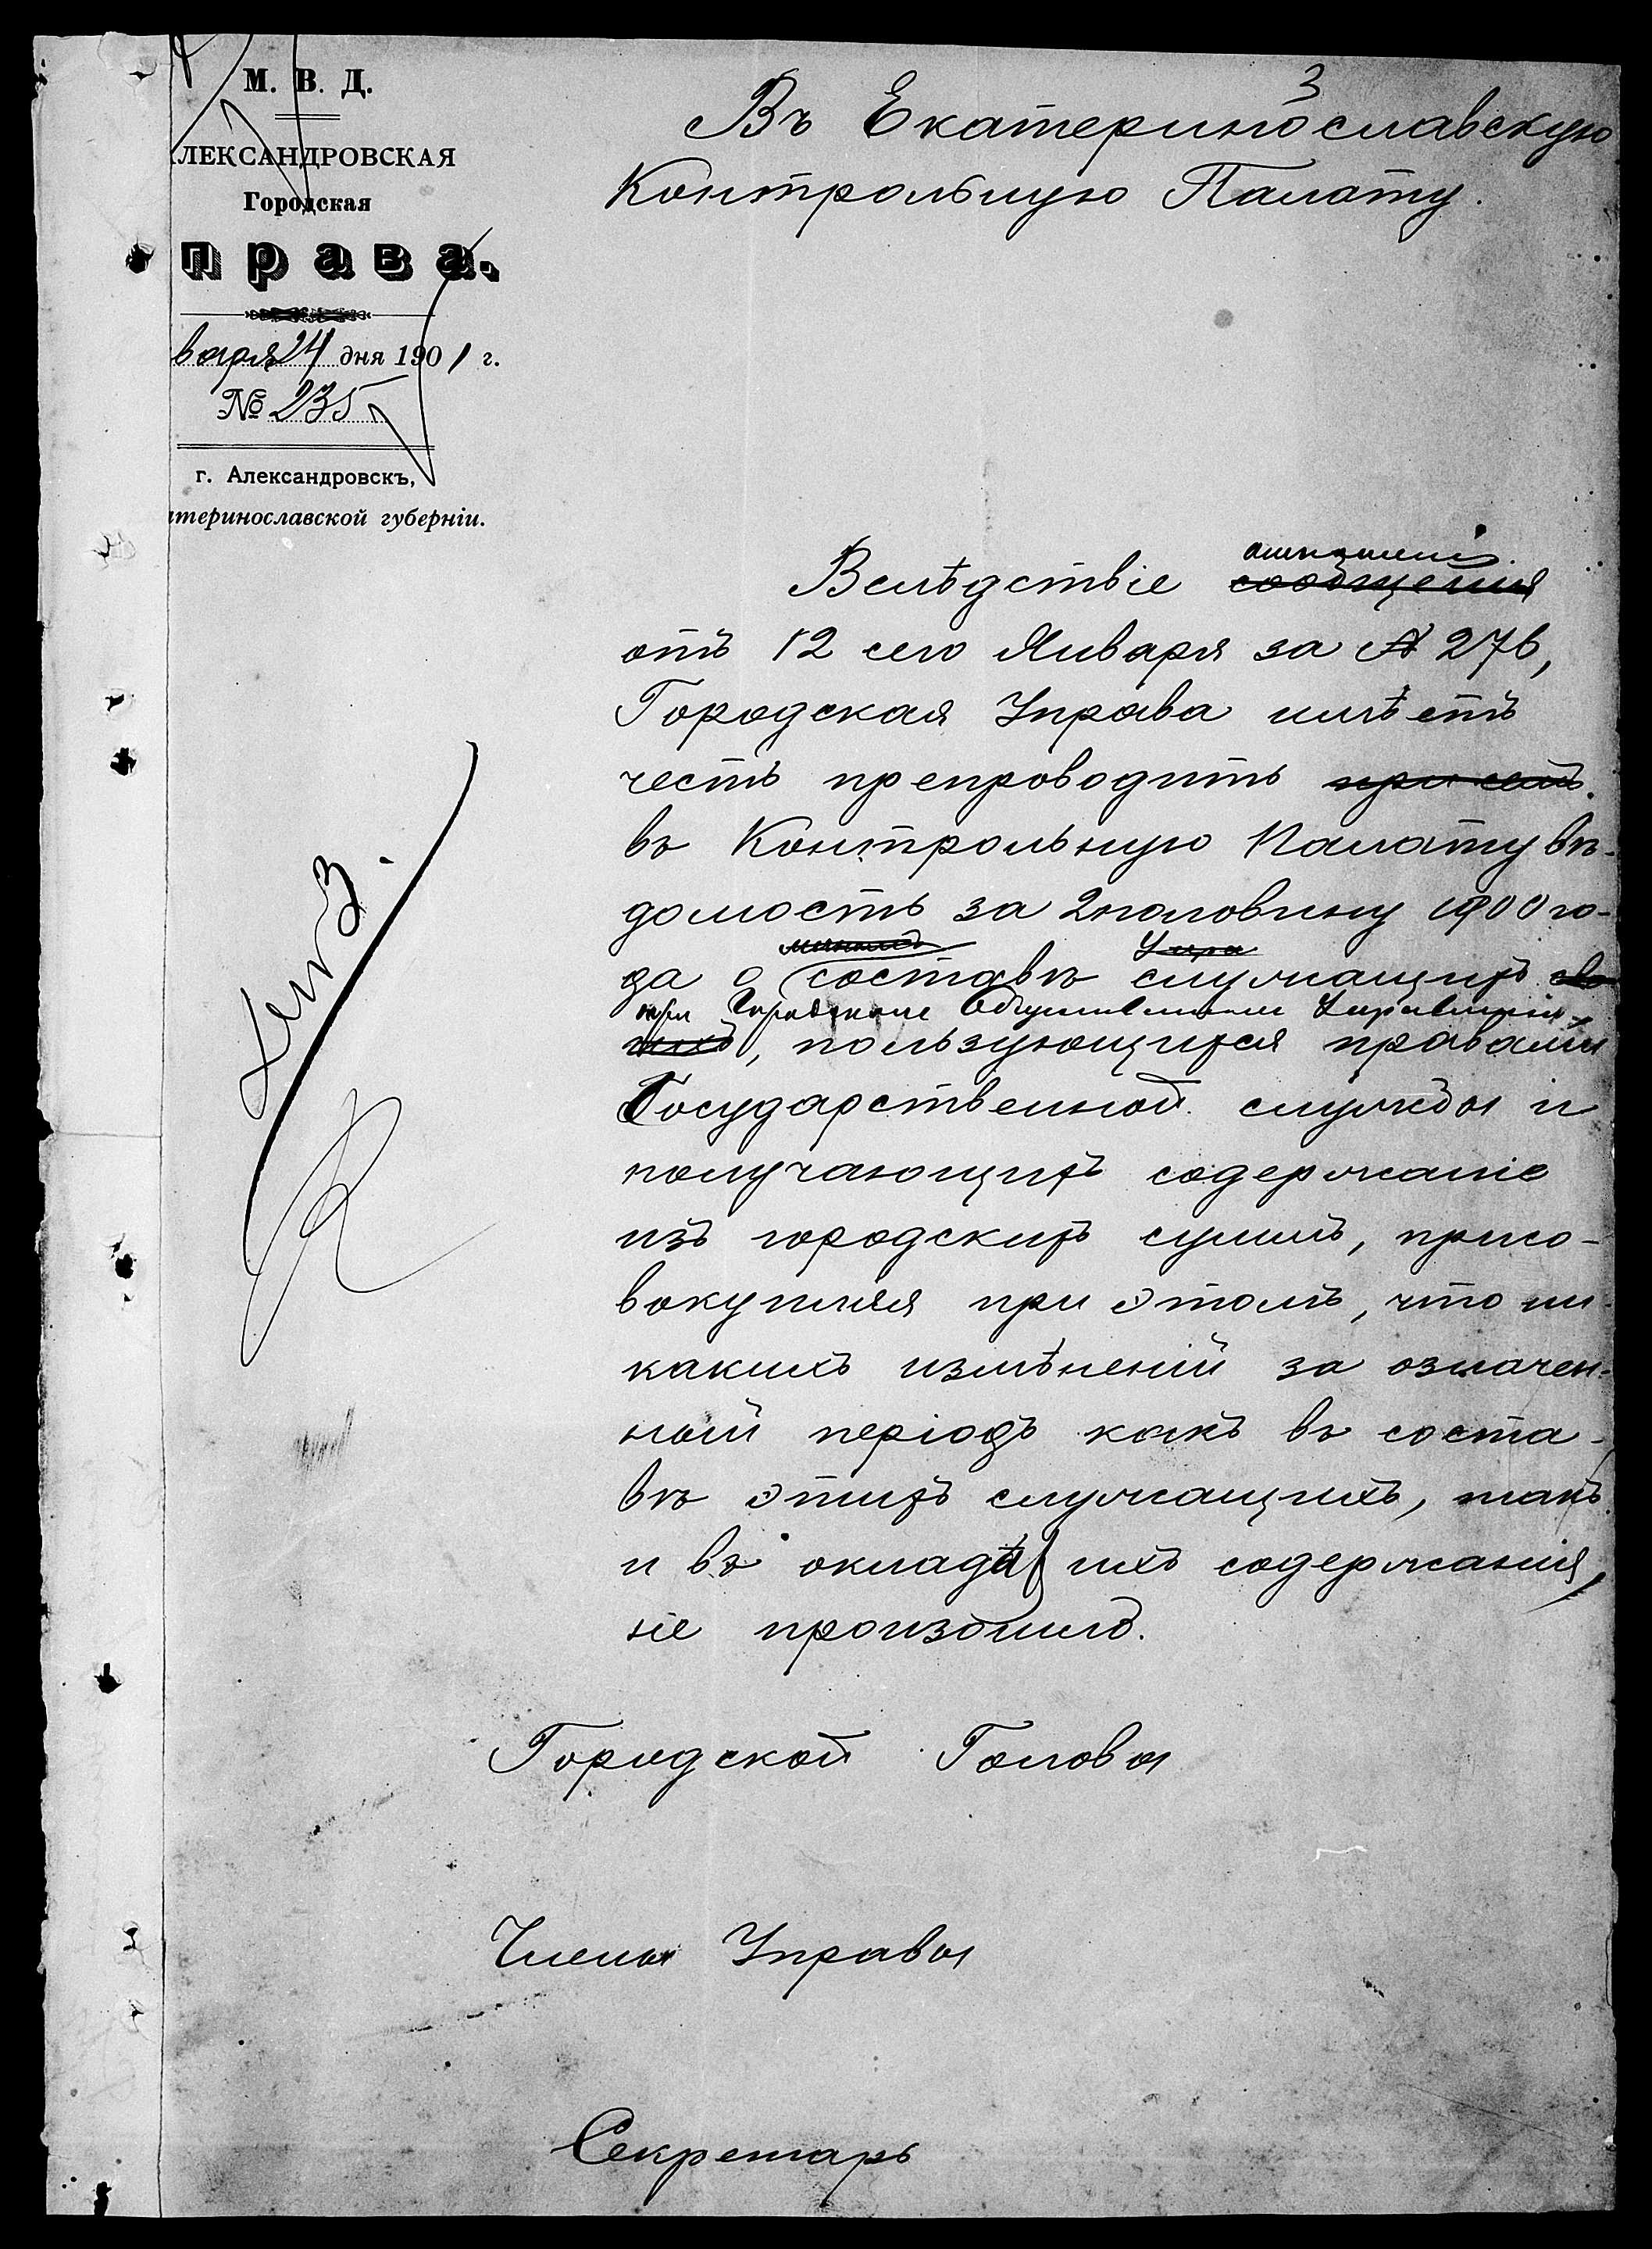 М. В. Д.
ЛЕКСАНДРОВСКАЯ
Городская
права.
варя 24 дня 1901 г.
№ 235
г. Александровскъ,
атеринославской губерніи.
3
Въ Екатеринославскую
Контрольную Палату.
отношенія
Вслѣдствіе сообщенія
отъ 12 сего Января за № 276,
Городская Управа имѣетъ
честь препроводить при семъ
въ Контрольную Палату вѣ-
домость за 2 половину 1900 го-
Упра
да о составѣ служащихъ сво
при Городскомъ Общественномъ Управленіи
ихъ, пользующихся правами
Государственной службы и
получающихъ содержаніе
изъ городскихъ суммъ, присо-
вокупляя при этомъ, что ни-
какихъ измѣненій за означен-
ный періодъ какъ въ соста-
вѣ этихъ служащихъ, такъ
и въ окладѣ ихъ содержанія,
не произошло.
Городской Голова
Члены Управы
Секретарь